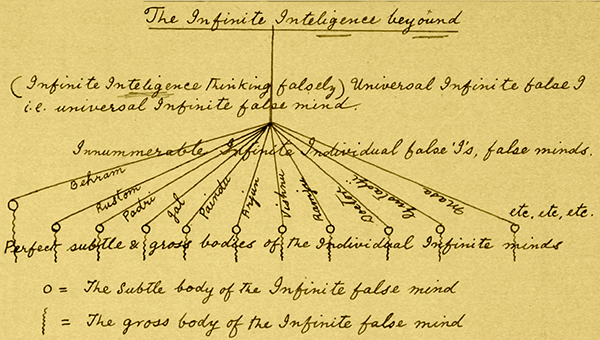 The Infinite Inteligence beyound
(Infinite Inteligence thinking falsely) Universal Infinite false I
i.e. universal Infinite false mind.
Innummerable Infinite Individual false 'I's, false minds.
Behram
Rustom
Padri
Jal
Paindu
Arjun
Vishnu
Ramju
Gustadji
Masa
etc, etc, etc.
Perfect subtle & gross bodies of the Individual Infinite minds
o = The Subtle body of the Infinite false mind
= The gross body of the Infinite false mind